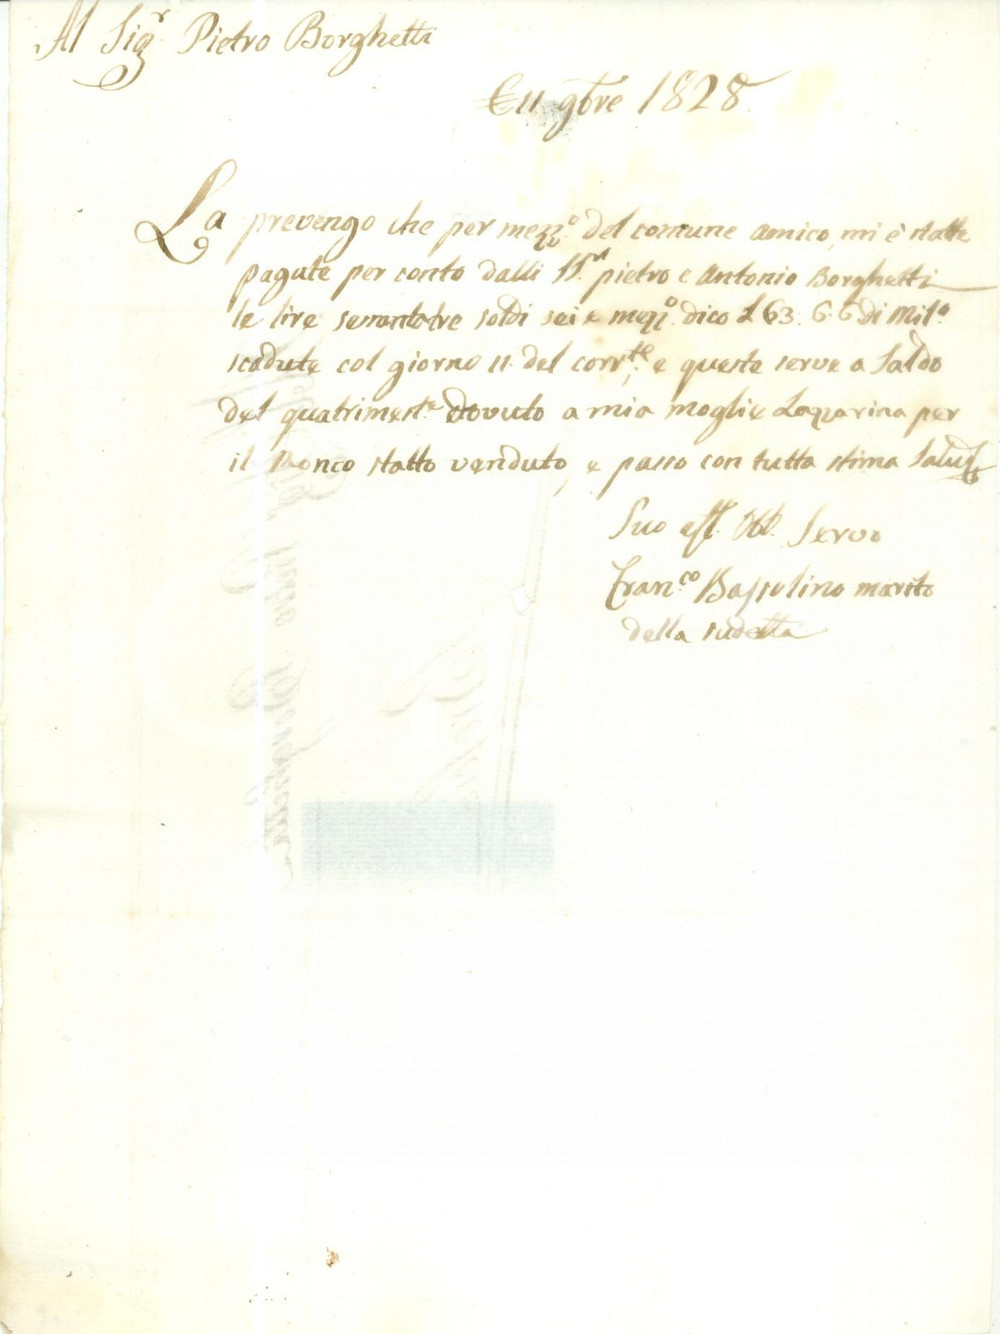 Al Sigr Pietro Borghetti
11 9bre 1828
La prevengo che per mezzo del comune Amico, mi è statte
pagate per conto dalli SS.ri pietro e Antonio Borghetti
le lire sessantatre soldi sei e mezo dico L 63. 6. 6 di Milo
scadute col giorno 11 del corrte, e queste serve a Saldo
del quatrimeste dovuto a mia moglie Lazarina per
il Ronco statto venduto, e passo con tutta stima
Suo aff. Obb. Servo
Franco Bassolino marito
della sudetta